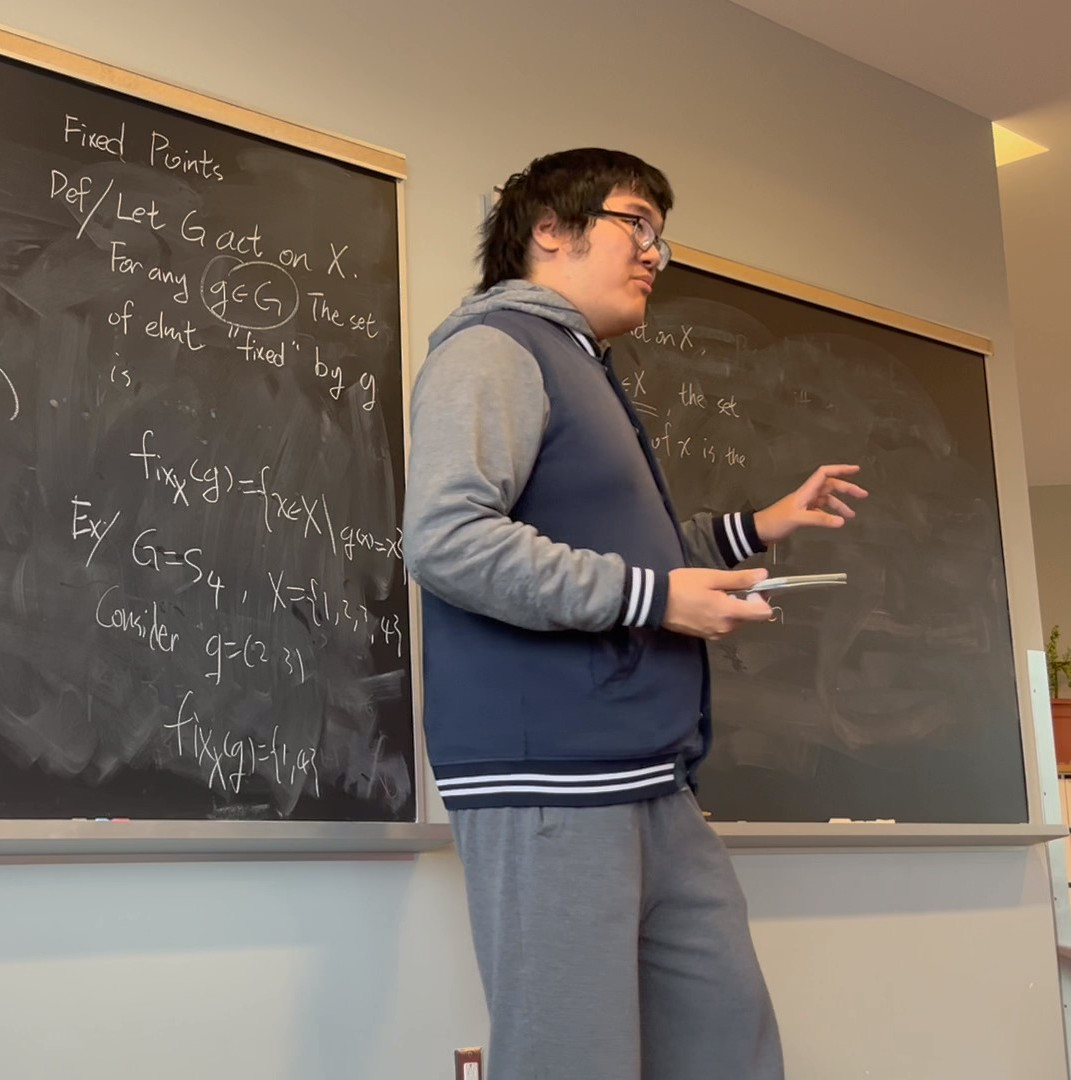 Fixed Points
Def/ Let G act on X.
For any g∈G The set
of elmt "fixed" by g
is
fix_X(g)={x∈X| g(x)=x}
Ex/ G=S_4, X={1,2,3,4}
Consider g=(2 3)
fix_X(g)={1,4}
on X,
∈X, the set
of x is the